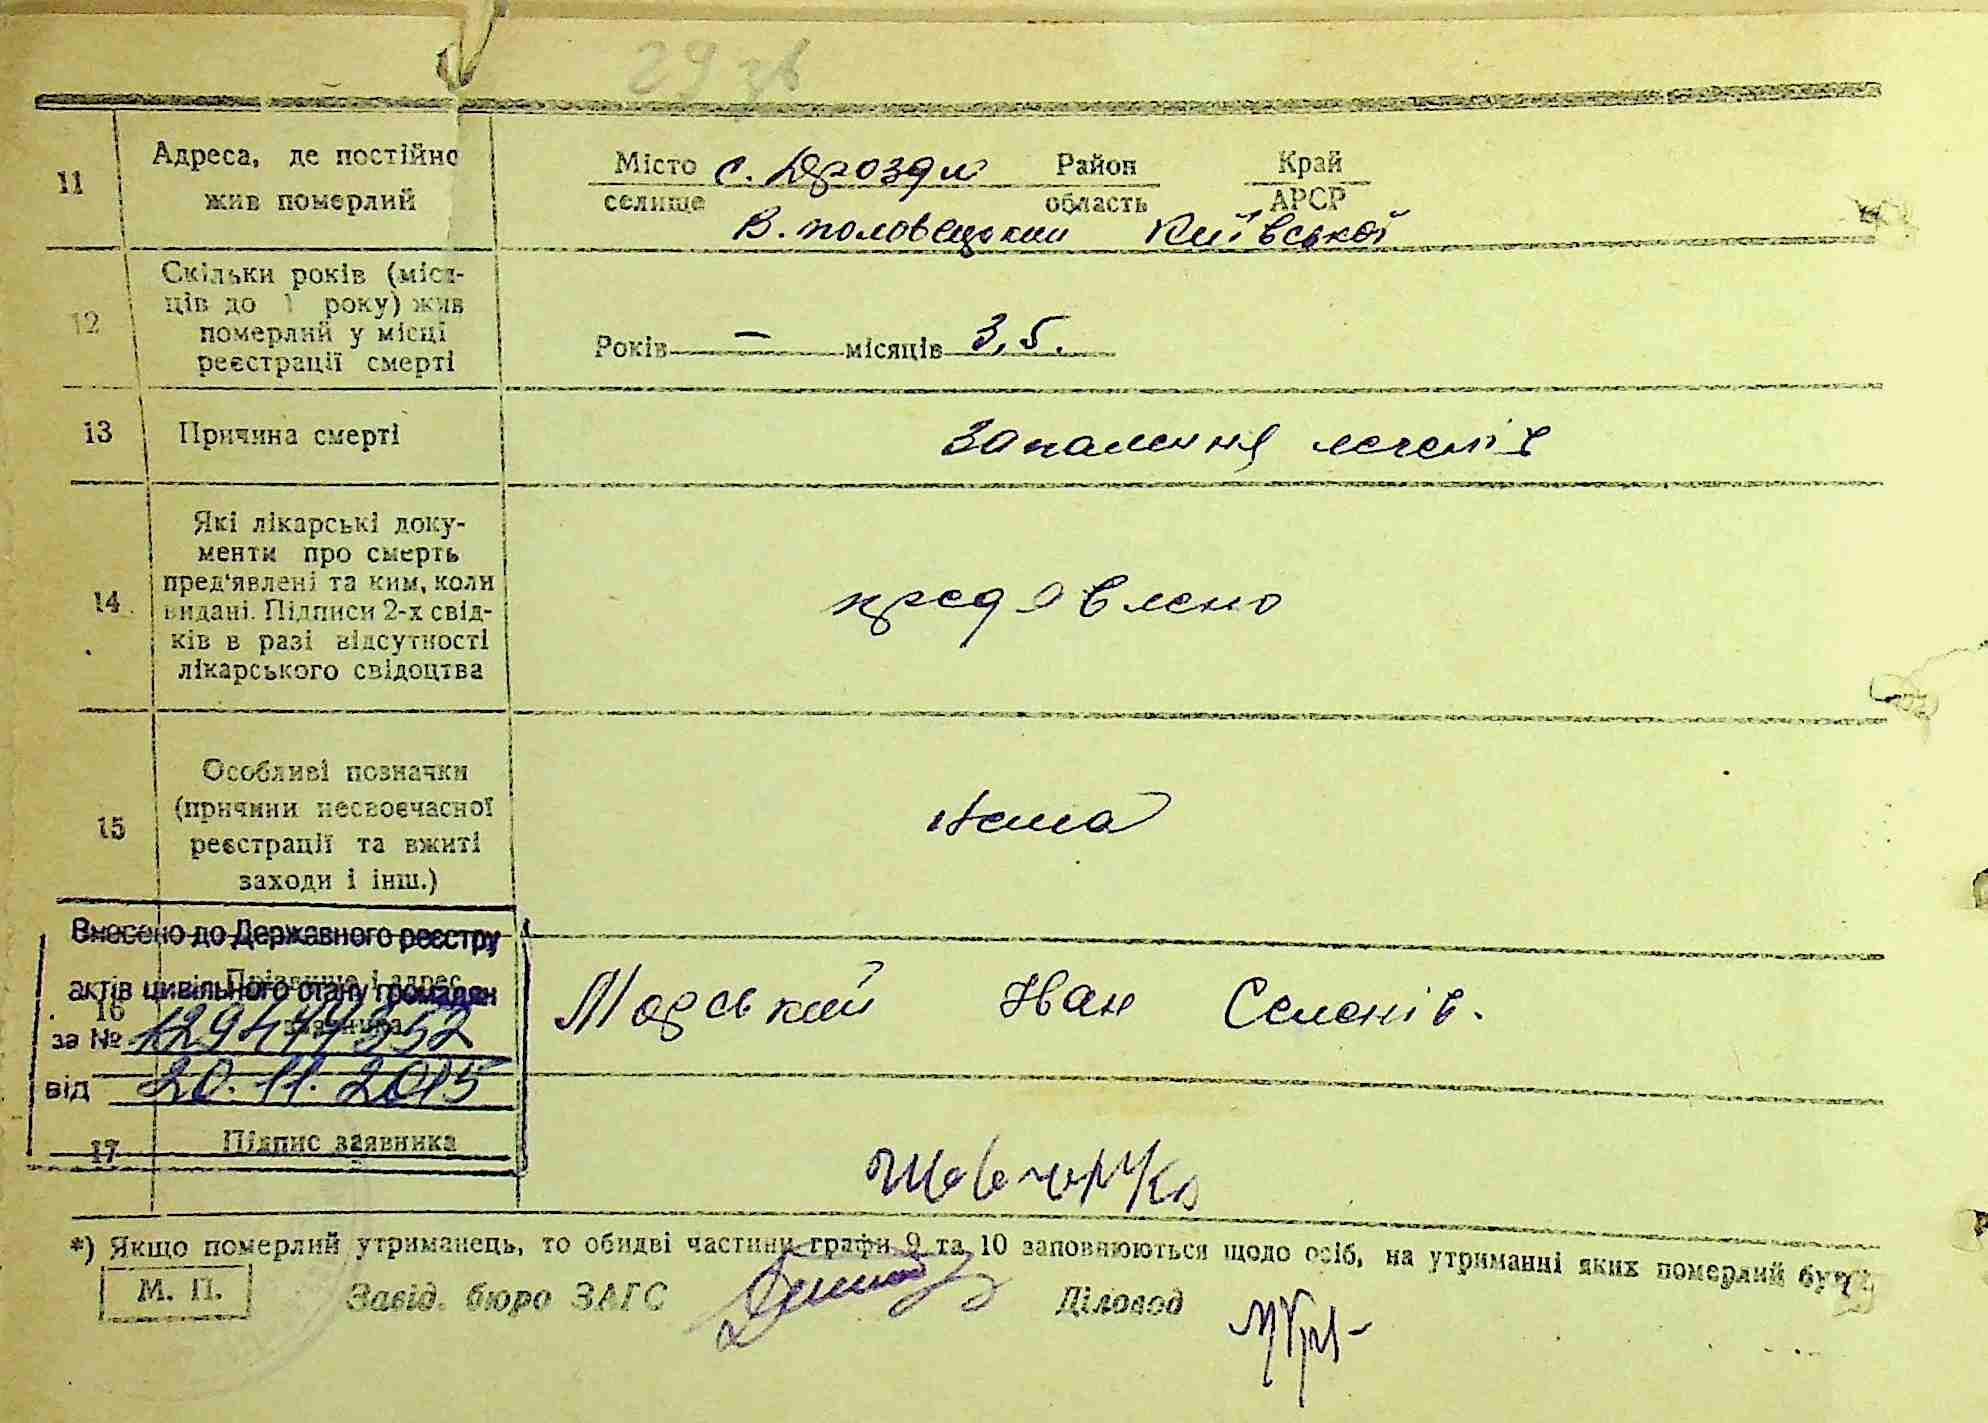 29 зв
11 Адреса, де постійно жив померлий
Місто селище с. Дрозди Район область Край АРСР
В. половецький Київської
12 Скільки років (міся-
ців до 1 року) жив
померлий у місці
реєстрації смерті
Років — місяців 3,5.
13 Причина смерті запалення легенів
14 Які лікарські доку-
менти про смерть
пред'явлені та ким, коли
видані. Підписи 2-х свід-
ків в разі відсутності
лікарського свідоцтва
предявлено
15 Особливі позначки
(причини несвоєчасної
реєстрації та вжиті
заходи і інш.)
нема
Внесено до Державного реєстру
актів цивільного стану громадян
за №
від 20.11.2015
16 Прізвище і адрес
заявника
Іван Семенів.
17 Підпис заявника
*) Якщо померлий утриманець, то обидві частини графи 9 та 10 заповнюються щодо осіб, на утриманні яких померлий був
М. П. Завід. бюро ЗАГС Діловод